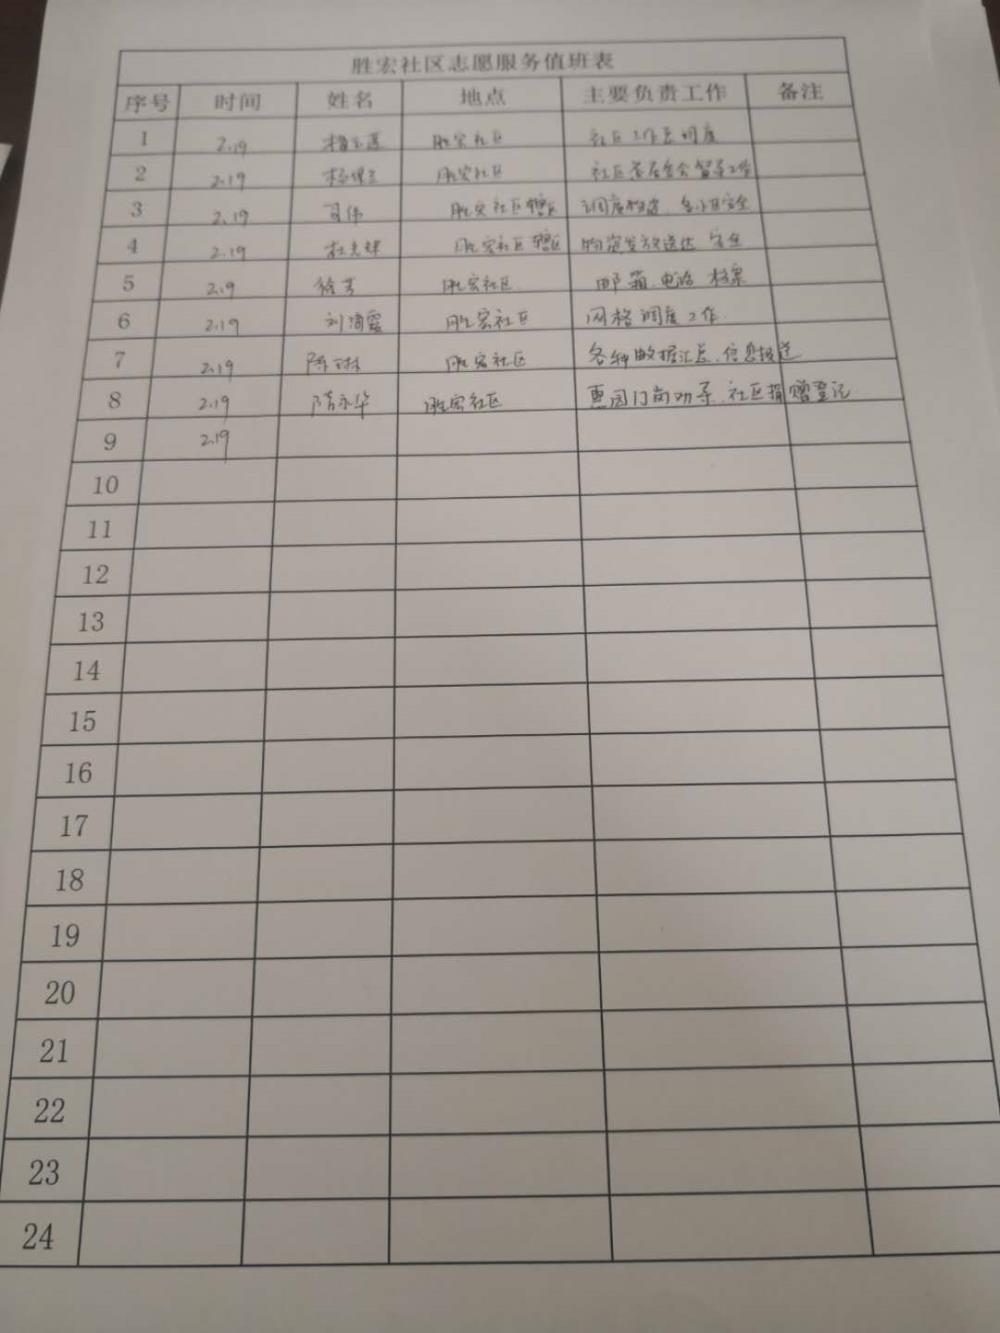 胜宏社区志愿服务值班表
序号 时间 姓名 地点 主要负责工作 备注
1 2.19 胜宏社区 社区工作总调度
2 2.19 胜宏社区 社区
3 2.19 司伟 胜宏社区辖区 调度物资
4 2.19 胜宏社区辖区 物资发放送达 安全
5 2.9 徐芳 胜宏社区 邮箱 电话 档案
6 2.19 刘清霞 胜宏社区 网格调度工作
7 2.19 陈琳 胜宏社区 各种数据汇总、信息报送
8 2.19 隋永华 胜宏社区 惠园门岗劝导、社区捐赠登记
9 2.19
10
11
12
13
14
15
16
17
18
19
20
21
22
23
24